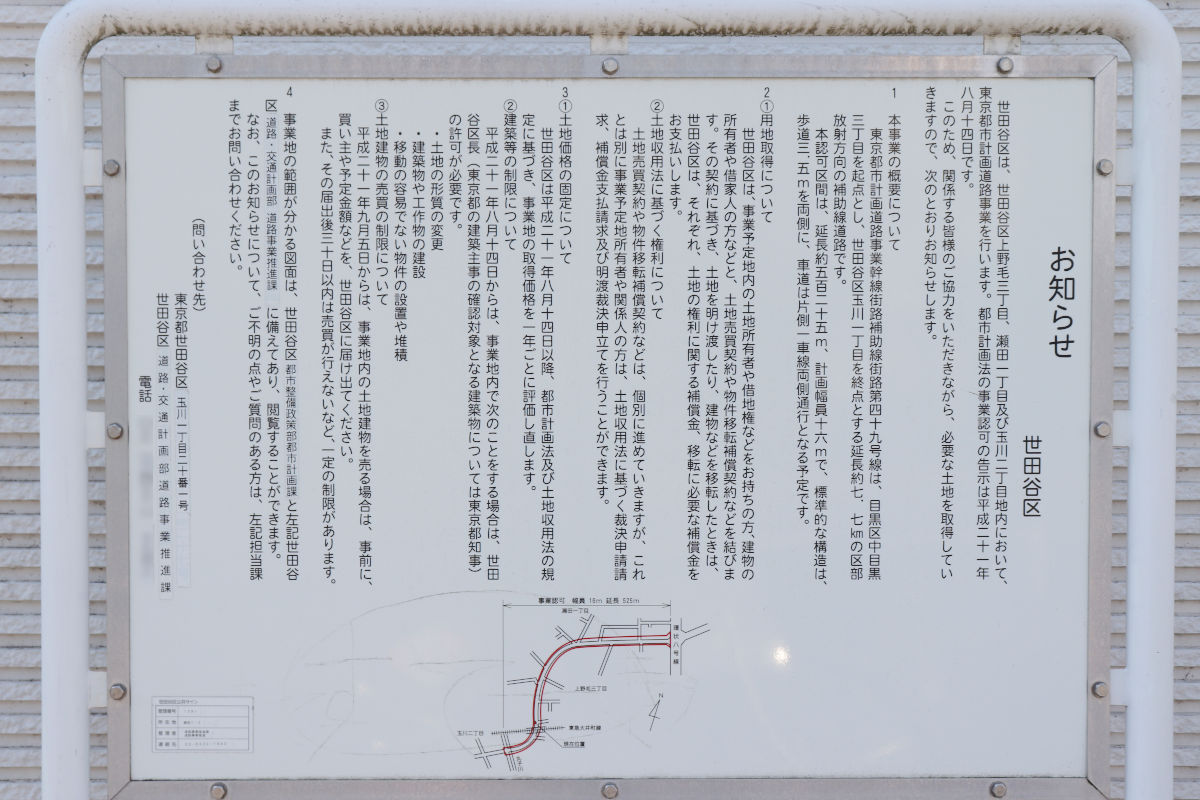 お知らせ
世田谷区
世田谷区は、世田谷区上野毛三丁目、瀬田一丁目及び玉川二丁目地内において、
東京都市計画道路事業を行います。都市計画法の事業認可の告示は平成二十一年
八月十四日です。
このため、関係する皆様のご協力をいただきながら、必要な土地を取得してい
きますので、次のとおりお知らせします。
1 本事業の概要について
東京都市計画道路事業幹線街路補助線街路第四十九号線は、目黒区中目黒
三丁目を起点とし、世田谷区玉川一丁目を終点とする延長約七．七kmの区部
放射方向の補助線道路です。
本認可区間は、延長約五百二十五m、計画幅員十六mで、標準的な構造は、
歩道三．五mを両側に、車道は片側一車線両側通行となる予定です。
2 ①用地取得について
世田谷区は、事業予定地内の土地所有者や借地権などをお持ちの方、建物の
所有者や借家人の方などと、土地売買契約や物件移転補償契約などを結びま
す。その契約に基づき、土地を明け渡したり、建物などを移転したときは、
世田谷区は、それぞれ、土地の権利に関する補償金、移転に必要な補償金を
お支払いします。
②土地収用法に基づく権利について
土地売買契約や物件移転補償契約などは、個別に進めていきますが、これ
とは別に事業予定地所有者や関係人の方は、土地収用法に基づく裁決申請請
求、補償金支払請求及び明渡裁決申立てを行うことができます。
3 ①土地価格の固定について
世田谷区は平成二十一年八月十四日以降、都市計画法及び土地収用法の規
定に基づき、事業地の取得価格を一年ごとに評価し直します。
②建築等の制限について
平成二十一年八月十四日からは、事業地内で次のことをする場合は、世田
谷区長（東京都の建築主事の確認対象となる建築物については東京都知事）
の許可が必要です。
・土地の形質の変更
・建築物や工作物の建設
・移動の容易でない物件の設置や堆積
③土地建物の売買の制限について
平成二十一年九月五日からは、事業地内の土地建物を売る場合は、事前に、
買い主や予定金額などを、世田谷区に届け出てください。
また、その届出後三十日以内は売買が行えないなど、一定の制限があります。
4 事業地の範囲が分かる図面は、世田谷区都市整備政策部都市計画課と左記世田谷
区 道路・交通計画部 道路事業推進課 に備えてあり、閲覧することができます。
なお、このお知らせについて、ご不明の点やご質問のある方は、左記担当課
までお問い合わせください。
（問い合わせ先）
東京都世田谷区 玉川一丁目二十番一号
世田谷区 道路・交通計画部道路事業推進課
電話
事業認可 幅員 16m 延長 525m
瀬田一丁目
環状八号線
上野毛三丁目
N
玉川二丁目
東急大井町線
現在位置
世田谷区公共サイン
管理番号
所在地
管理者
連絡先